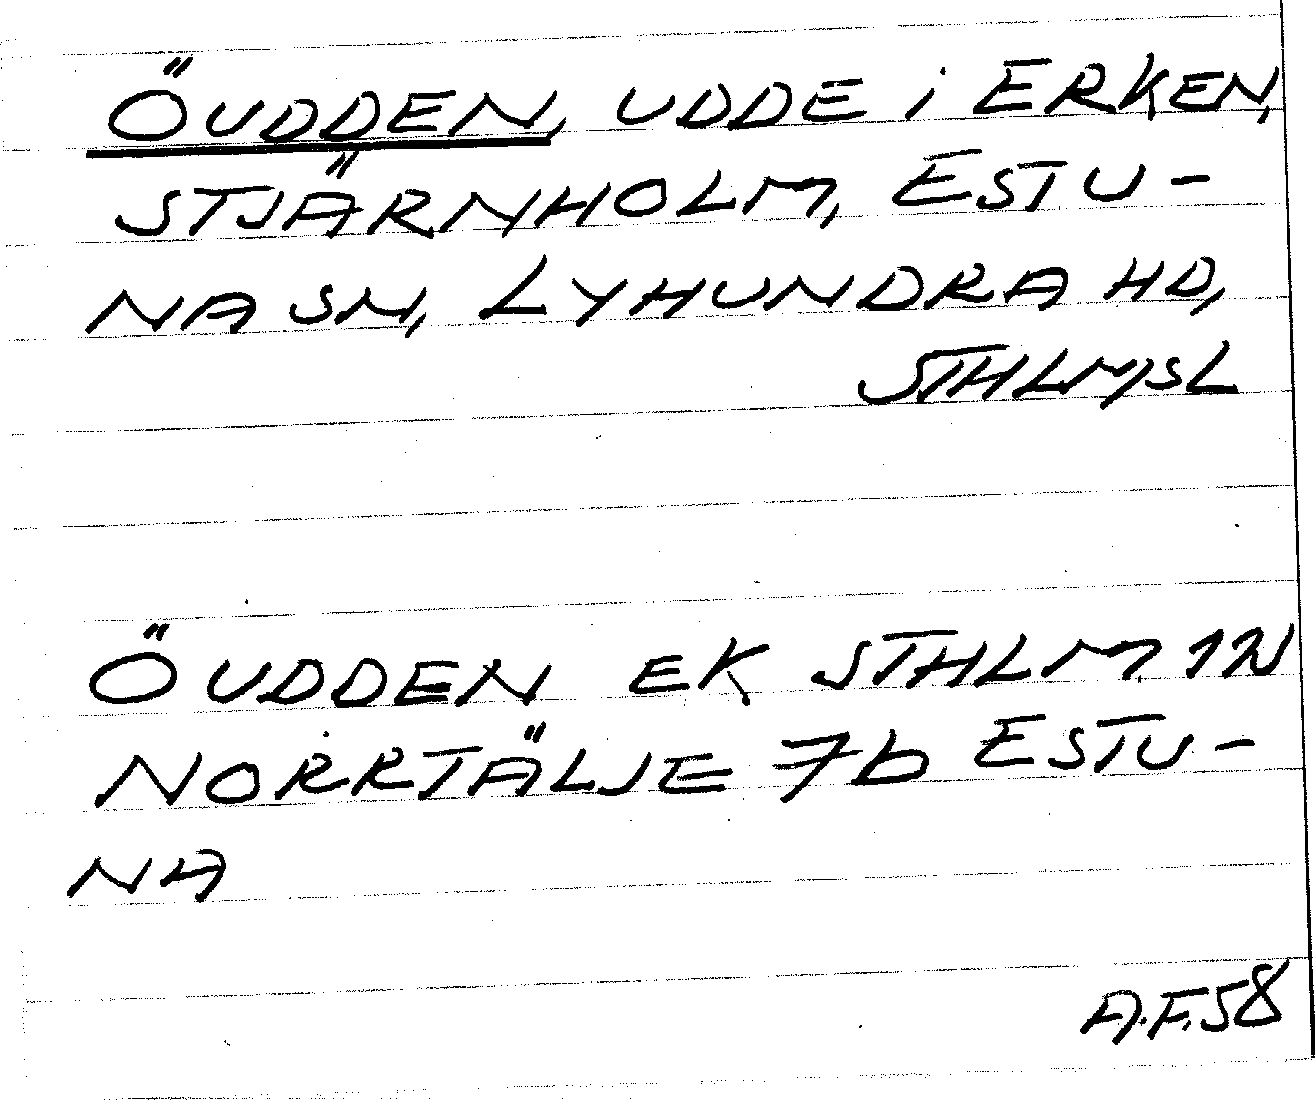 ÖUDDEN, UDDE i ERKEN,
STJÄRNHOLM, ESTU-
NA SN, LYHUNDRA HD,
STHLMSL
ÖUDDEN EK STHLM 1N
NORRTÄLJE 7b ESTU-
NA
A.F.58